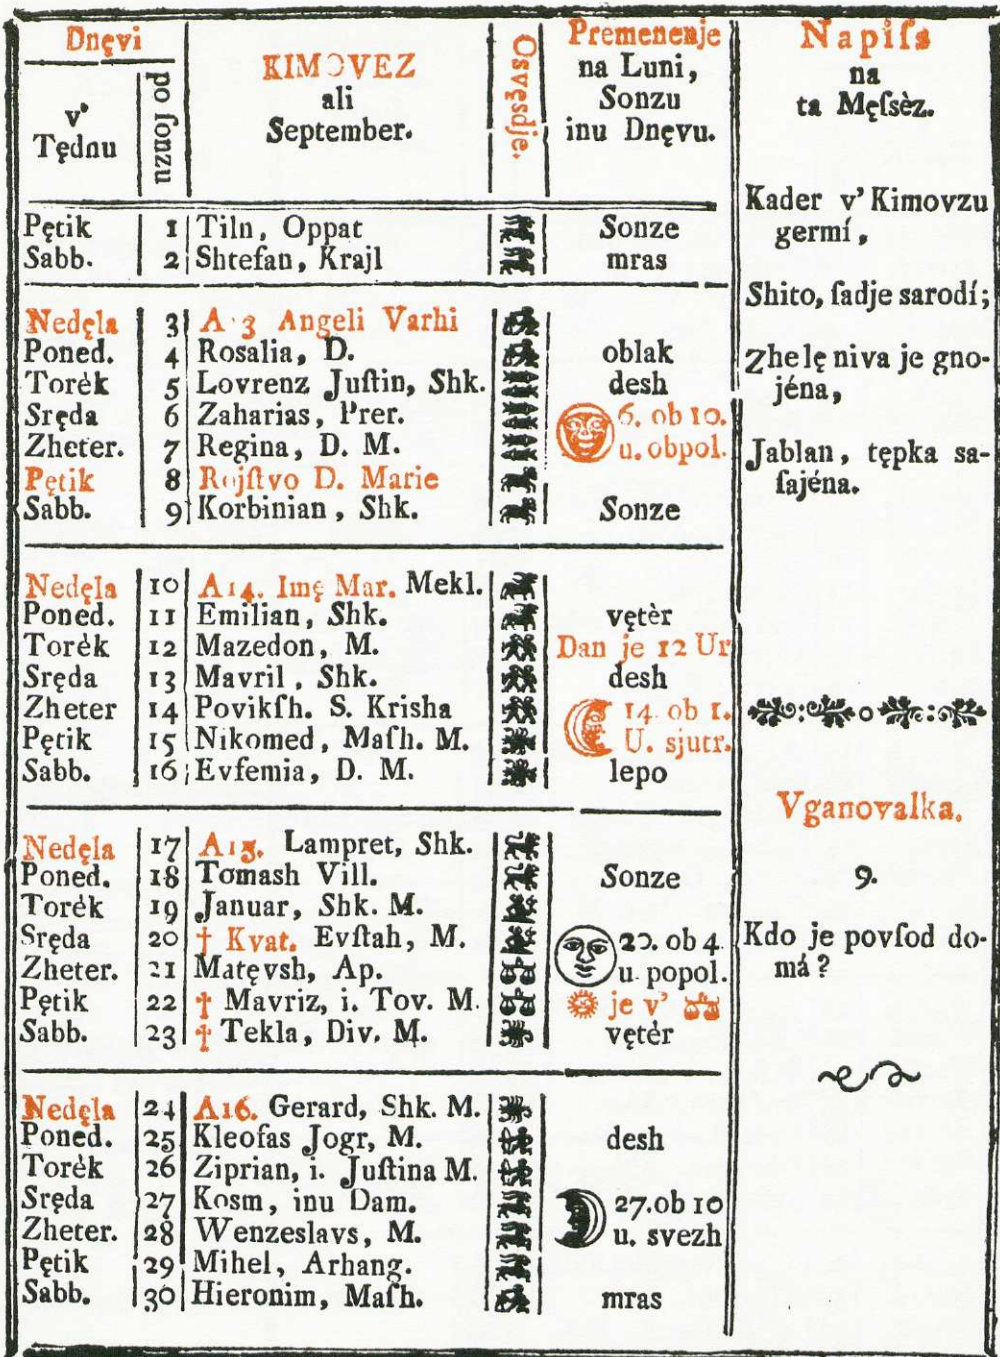 Dnęvi
v' Tędnu
po ſonzu
KIMOVEZ
ali
September.
Osvęsdje.
Premenenje
na Luni,
Sonzu
inu Dnęvu.
Napiſs
na
ta Męſsèz.
Pętik 1 Tiln, Oppat Sonze
Sabb. 2 Shtefan, Krajl mras
Nedęla 3 A 3 Angeli Varhi
Poned. 4 Rosalia, D. oblak
Torèk 5 Lovrenz Juſtin, Shk. desh
Sręda 6 Zaharias, Prer. 6. ob 10.
Zheter. 7 Regina, D. M. u. obpol.
Pętik 8 Rojſtvo D. Marie
Sabb. 9 Korbinian, Shk. Sonze
Nedęla 10 A14. Imę Mar. Mekl.
Poned. 11 Emilian, Shk. vętèr
Torèk 12 Mazedon, M. Dan je 12 Ur
Sręda 13 Mavril, Shk. desh
Zheter 14 Povikſh. S. Krisha 14. ob 1.
Pętik 15 Nikomed, Maſh. M. U. sjutr.
Sabb. 16 Evfemia, D. M. lepo
Nedęla 17 A15. Lampret, Shk.
Poned. 18 Tomash Vill. Sonze
Torèk 19 Januar, Shk. M.
Sręda 20 † Kvat. Evſtah, M. 20. ob 4
Zheter. 21 Matęvsh, Ap. u. popol.
Pętik 22 † Mavriz, i. Tov. M. je v'
Sabb. 23 † Tekla, Div. M. vętèr
Nedęla 24 A16. Gerard, Shk. M.
Poned. 25 Kleofas Jogr, M. desh
Torèk 26 Ziprian, i. Juſtina M.
Sręda 27 Kosm, inu Dam. 27. ob 10
Zheter. 28 Wenzeslavs, M. u. svezh
Pętik 29 Mihel, Arhang.
Sabb. 30 Hieronim, Maſh. mras
Kader v' Kimovzu
germí,
Shito, ſadje sarodí;
Zhe lę niva je gno-
jéna,
Jablan, tępka sa-
ſajéna.
Vganovalka.
9.
Kdo je povſod do-
má?